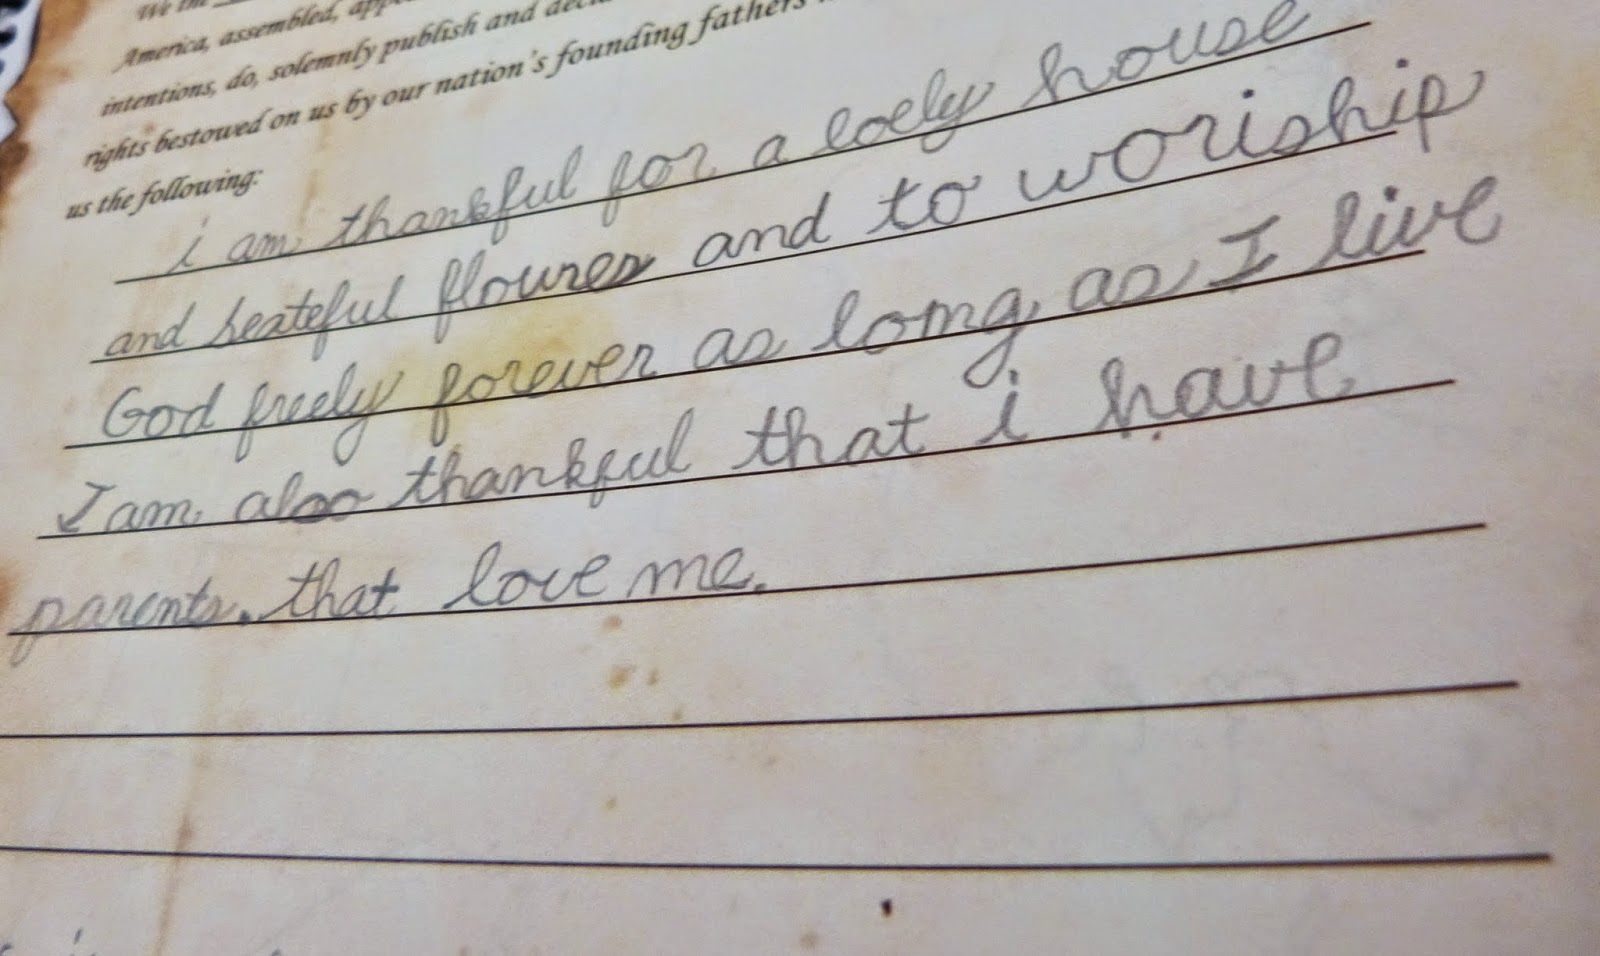 We the
America, assembled,
intentions, do, solemnly publish and
rights bestowed on us by our nation's founding fathers
us the following:
i am thankful for a loely house
and beateful floures and to woriship
God freely forever as long as I live
I am also thankful that i have
parents. that love me.